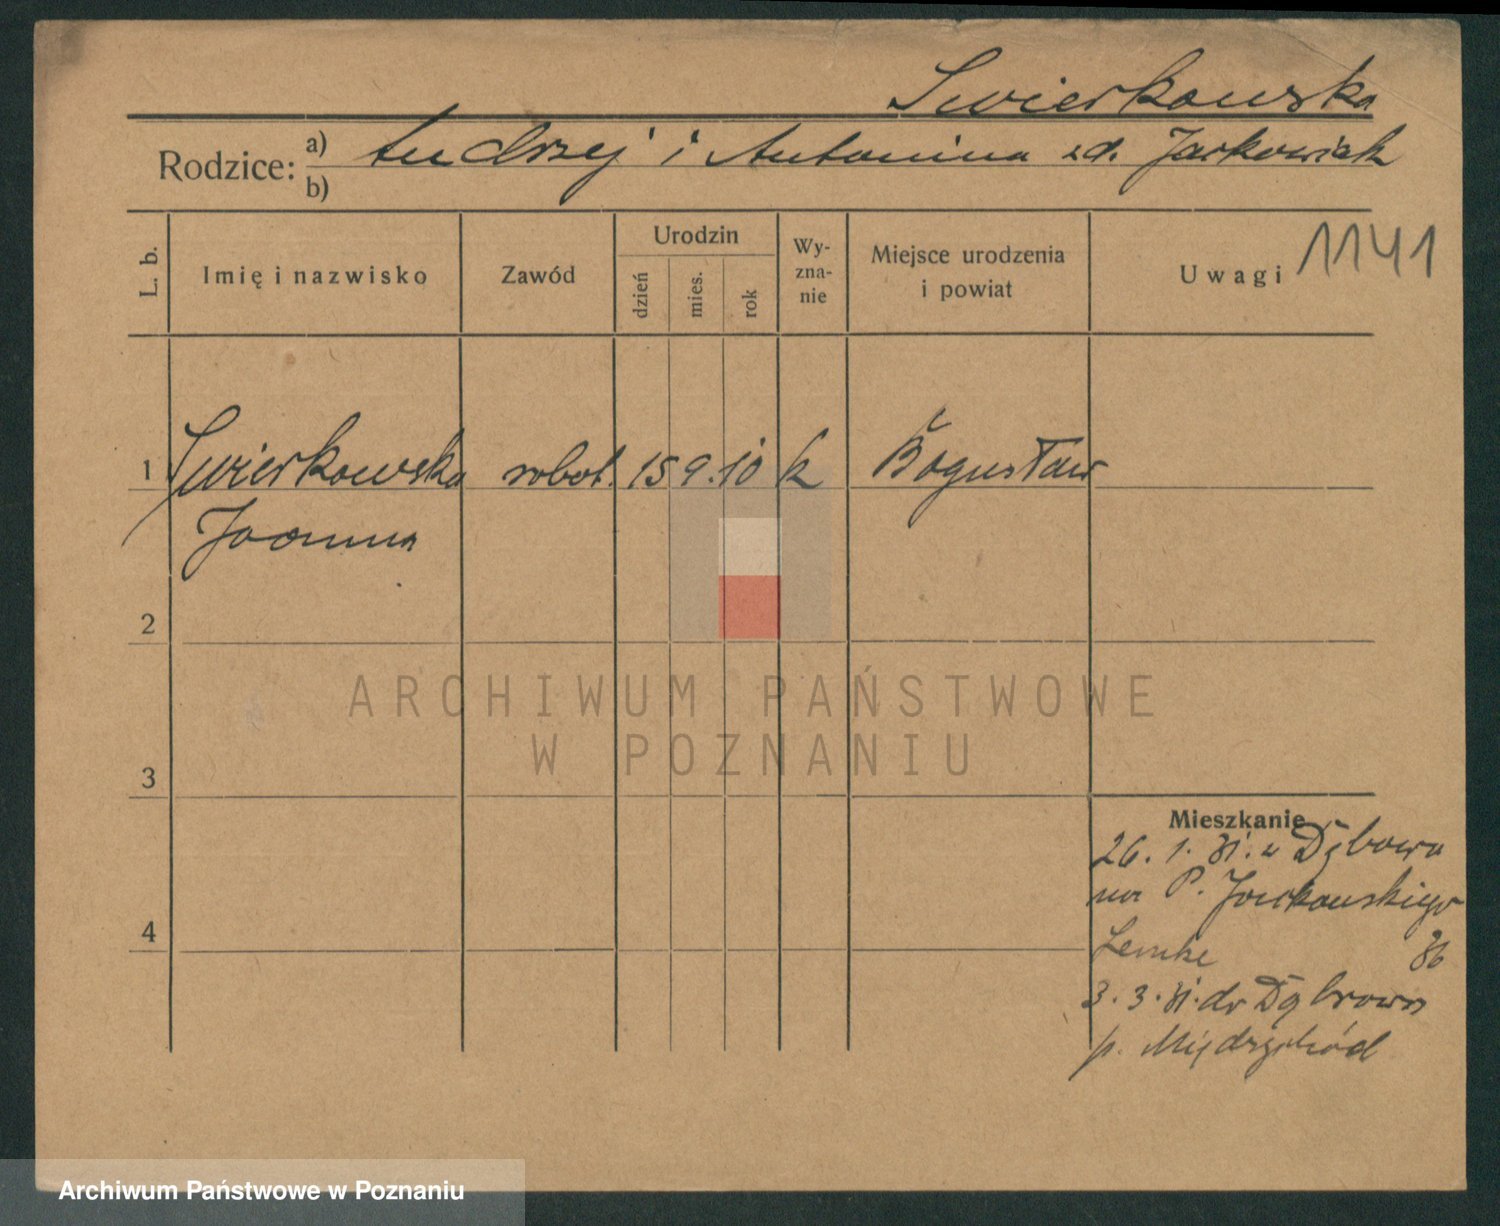 Swierkowska
Rodzice: a) Andrzej i Antonina zd. Jarkowiak
b)
L. b. Imię i nazwisko Zawód Urodzin dzień mies. rok Wy-zna-nie Miejsce urodzenia i powiat Uwagi 1141
1 Swierkowska robot. 15 9. 10 k Bogusław
Joanna
2
3
4
Mieszkanie
26. 1. 31. z Dąbowa
na P. Jackowskiego
Lemke 36
3. 3. 31. do Dąbrowy
p. Międzychód
ARCHIWUM PAŃSTWOWE
W POZNANIU
Archiwum Państwowe w Poznaniu